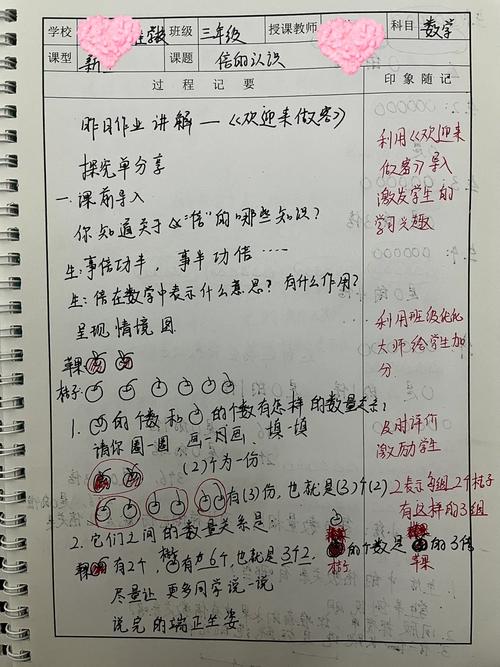 学校 班级 三年级 授课教师 科目 数学
课型 新 课题 倍的认识
过程记要 印象随记
昨日作业讲解—《欢迎来做客》
探究单分享
一.课前导入
你知道关于"倍"的哪些知识?
生:事倍功半,事半功倍……
生:倍在数学中表示什么意思?有什么作用?
呈现情境图
苹果
桔子
1. 的个数和 的个数有怎样的数量关系?
请你圈一圈 画一画 填一填
(2)个为一份
有(3)份,也就是(3)个(2)
2.它们之间的数量关系是:
有2个, 有 6个,也就是3个2.
桔子 的个数是 苹果 的3倍
尽量让更多同学说一说
说完的端正坐姿
利用《欢迎来
做客》导入
激发学生的
学习兴趣
利用班级优化
大师给学生加
分
及时评价
激励学生
2表示每组2个桔子
有这样的3组